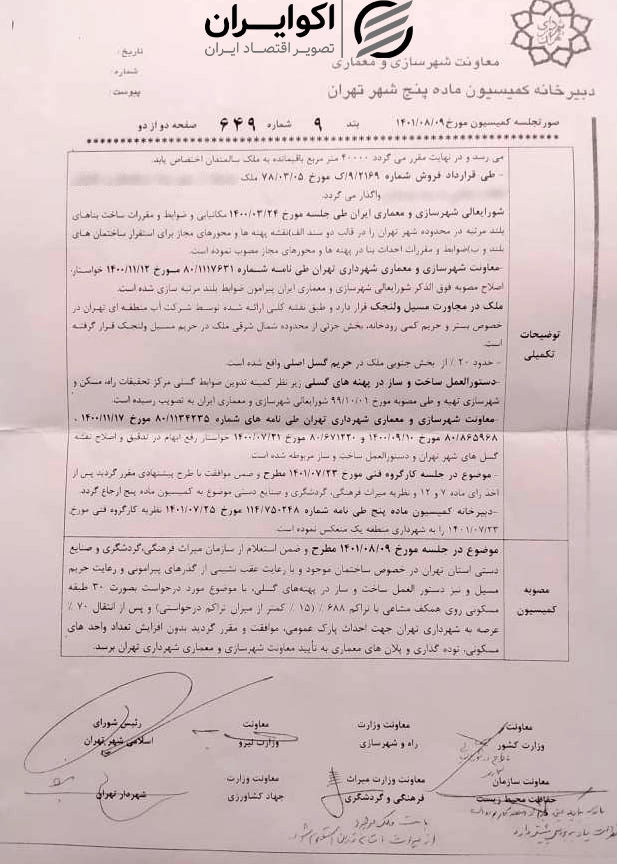 اکوایران
تصویر اقتصاد ایران
معاونت شهرسازی و معماری
دبیرخانه کمیسیون ماده پنج شهر تهران
تاریخ:
شماره:
پیوست:
صورتجلسه کمیسیون مورخ ۱۴۰۱/۰۸/۰۹ بند ۹ شماره ۶۴۹ صفحه دو از دو
توضیحات تکمیلی
می رسد و در نهایت مقرر می گردد ۴۰۰۰۰ متر مربع باقیمانده به ملک سالمندان اختصاص یابد.
- طی قرارداد فروش شماره ۹/۲۱۶۹/ک مورخ ۷۸/۰۳/۰۵ ملک
واگذار می گردد.
شورایعالی شهرسازی و معماری ایران طی جلسه مورخ ۱۴۰۰/۰۳/۲۴ مکانیابی و ضوابط و مقررات ساخت بناهای
بلند مرتبه در محدوده شهر تهران را در قالب دو سند الف)نقشه پهنه ها و محورهای مجاز برای استقرار ساختمان های
بلند و ب)ضوابط و مقررات احداث بنا در پهنه ها و محورهای مجاز مصوب نموده است.
-معاونت شهرسازی و معماری شهرداری تهران طی نامه شماره ۸۰/۱۱۱۷۶۳۱ مورخ ۱۴۰۰/۱۱/۱۲ خواستار،
اصلاح مصوبه فوق الذکر شورایعالی شهرسازی و معماری ایران پیرامون ضوابط بلند مرتبه سازی شده است.
ملک در مجاورت مسیل ولنجک قرار دارد و طبق نقشه کلی ارائه شده توسط شرکت آب منطقه ای تهران در
خصوص بستر و حریم کمی رودخانه، بخش جزئی از محدوده شمال شرقی ملک در حریم مسیل ولنجک قرار گرفته
است.
- حدود ۲۰ ٪ از بخش جنوبی ملک در حریم گسل اصلی واقع شده است.
-دستورالعمل ساخت و ساز در پهنه های گسلی زیر نظر کمیته تدوین ضوابط گسلی مرکز تحقیقات راه، مسکن و
شهرسازی تهیه و طی مصوبه مورخ ۹۹/۱۰/۰۱ شورایعالی شهرسازی و معماری ایران به تصویب رسیده است.
-معاونت شهرسازی و معماری شهرداری تهران طی نامه های شماره ۸۰/۱۱۳۴۲۳۵ مورخ ۱۴۰۰/۱۱/۱۷ ،
۸۰/۸۶۵۹۶۸ مورخ ۱۴۰۰/۰۹/۱۰ و ۸۰/۶۷۱۲۲۰ مورخ ۱۴۰۰/۰۷/۲۱ خواستار رفع ابهام در تدقیق و اصلاح نقشه
گسل های شهر تهران و دستورالعمل ساخت و ساز مربوطه شده است.
- موضوع در جلسه کارگروه فنی مورخ ۱۴۰۱/۰۷/۲۳ مطرح و ضمن موافقت با طرح پیشنهادی مقرر گردید پس از
اخذ رای ماده ۷ و ۱۲ و نظریه میراث فرهنگی، گردشگری و صنایع دستی موضوع به کمیسیون ماده پنج ارجاع گردد.
-دبیرخانه کمیسیون ماده پنج طی نامه شماره ۱۱۴/۷۵۰۲۴۸ مورخ ۱۴۰۱/۰۷/۲۵ نظریه کارگروه فنی مورخ
۱۴۰۱/۰۷/۲۳ را به شهرداری منطقه یک منعکس نموده است.
مصوبه کمیسیون
موضوع در جلسه مورخ ۱۴۰۱/۰۸/۰۹ مطرح و ضمن استعلام از سازمان میراث فرهنگی،گردشگری و صنایع
دستی استان تهران در خصوص ساختمان موجود و با رعایت عقب نشینی از گذرهای پیرامونی و رعایت حریم
مسیل و نیز دستور العمل ساخت و ساز در پهنه‌های گسلی، با موضوع مورد درخواست بصورت ۳۰ طبقه
مسکونی روی همکف مشاعی با تراکم ۶۸۸ ٪ (۱۵ ٪ کمتر از میزان تراکم درخواستی) و پس از انتقال ۷۰ ٪
عرصه به شهرداری تهران جهت احداث پارک عمومی، موافقت و مقرر گردید بدون افزایش تعداد واحد های
مسکونی، توده گذاری و پلان های معماری به تأیید معاونت شهرسازی و معماری شهرداری تهران برسد.
معاونت وزارت کشور
معاونت وزارت راه و شهرسازی
معاونت وزارت نیرو
رئیس شورای اسلامی شهر تهران
معاونت سازمان حفاظت محیط زیست
معاونت وزارت میراث فرهنگی و گردشگری
معاونت وزارت جهاد کشاورزی
شهردار تهران